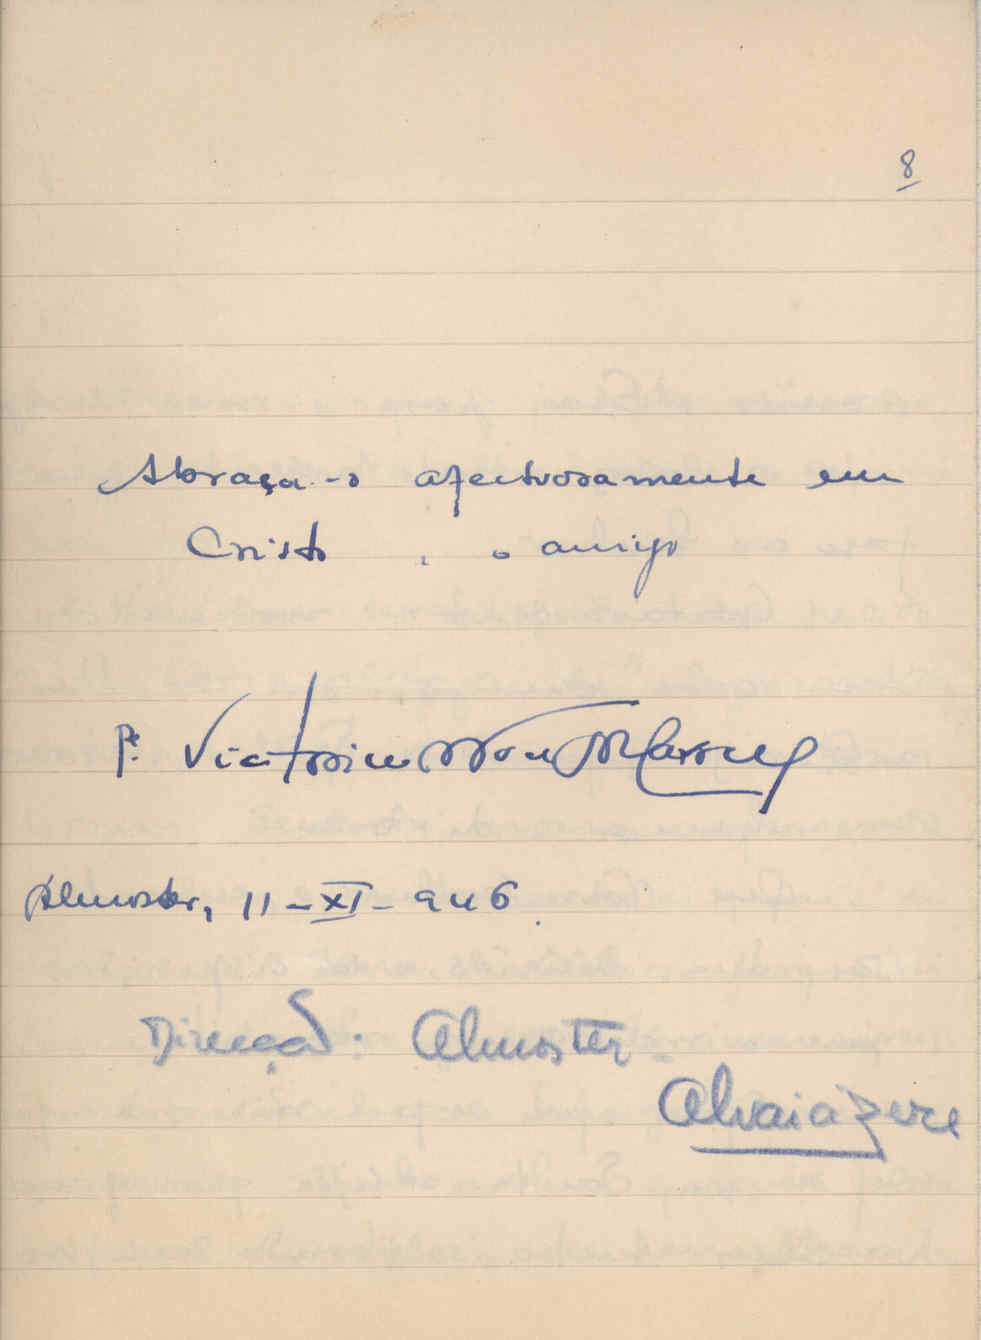 8
Abraça-o afectuosamente em
Cristo, o amigo
P.e Victorino
Almoster, 11-XI-946.
Direção: Almoster
Alvaiázere